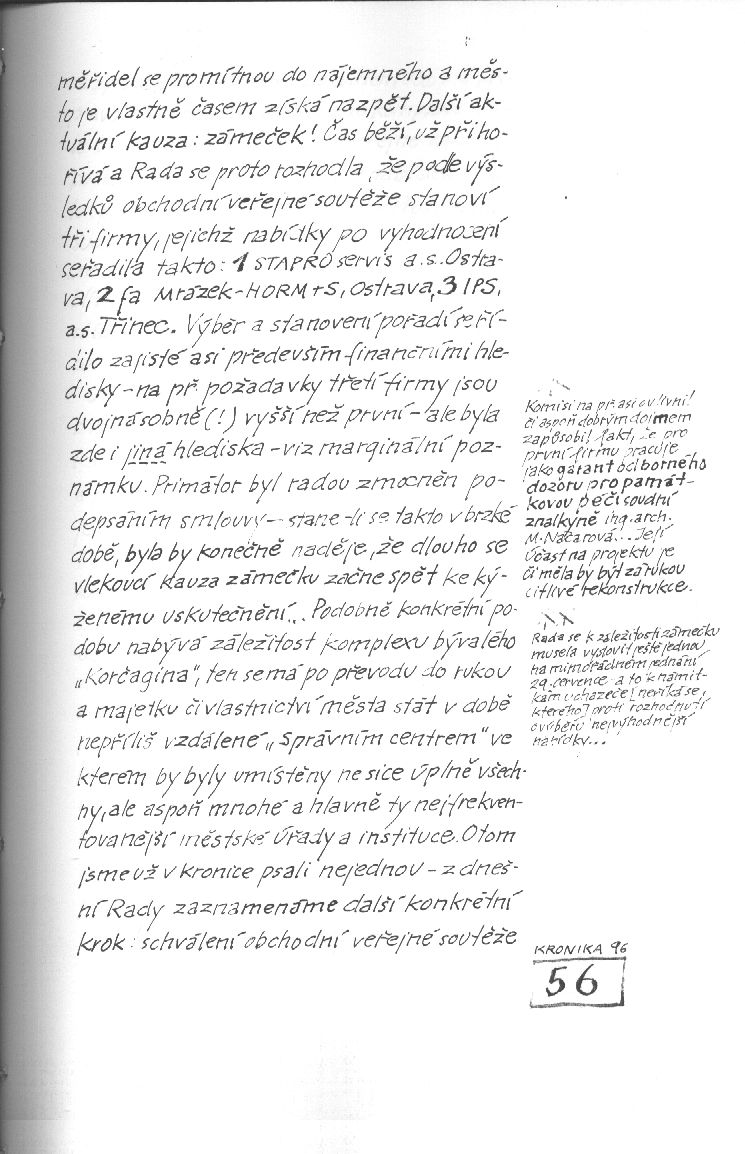 měřidel se promítnou do nájemného a měs-
to je vlastně časem získá nazpět. Další ak-
tuální kauza: zámeček! Čas běží, už přiho-
řívá a Rada se proto rozhodla, že podle výs-
ledků obchodní veřejné soutěže stanoví
tři firmy, jejichž nabídky po vyhodnocení
seřadila takto: 1 STAPRO servis a.s. Ostra-
va, 2 fa Mrázek-HORM+S, Ostrava, 3 IPS,
a.s. Třinec. Výběr a stanovení pořadí se ří-
dilo zajisté asi především finančními hle-
disky - na př. požadavky třetí firmy jsou
dvojnásobně (!) vyšší než první - ale byla
zde i jiná hlediska - viz marginální poz-
námku. Primátor byl radou zmocněn po-
depsáním smlouvy - stane-li se takto v brzké
době, byla by konečně naděje, že dlouho se
vlekoucí kauza zámečku začne spět ke ký-
ženému uskutečnění... Podobně konkrétní po-
dobu nabývá záležitost komplexu bývalého
„Korčagina“, ten se má po převodu do rukou
a majetku či vlastnictví města stát v době
nepříliš vzdálené „Správním centrem“ ve
kterém by byly umístěny ne sice úplně všech-
ny, ale aspoň mnohé a hlavně ty nejfrekven-
tovanější městské úřady a instituce. O tom
jsme už v kronice psali nejednou - z dneš-
ní Rady zaznamenáme další konkrétní
krok: schválení obchodní veřejné soutěže
Komisi na př. asi ovlivnil
či aspoň dobrým dojmem
zapůsobil fakt, že pro
první firmu pracuje
jako garant odborného
dozoru pro památ-
kovou péči soudní
znalkyně ing. arch.
M. Načarová... Její
účast na projektu je
či měla by být zárukou
citlivé rekonstrukce.
Rada se k záležitosti zámečku
musela vyslovit ještě jednou
na mimořádném jednání
29. července - a to k námit-
kám uchazeče (neříká se,
kterého) proti rozhodnutí
o výběru nejvýhodnější
nabídky...
KRONIKA 96
56